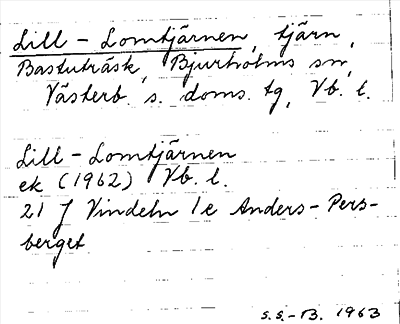 Lill-Lomtjärnen, tjärn,
Bastuträsk, Bjurholms sn,
Västerb. s. doms. tg, Vb. l.
Lill-Lomtjärnen
ek (1962) Vb. l.
21 J Vindeln 1e Anders-Pers-
berget
S.S.-B. 1963